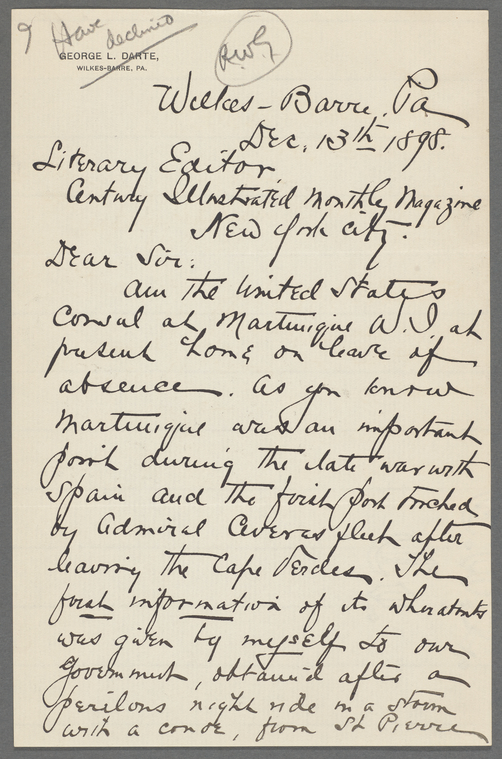 Have
declined
R.W.G.
GEORGE L. DARTE,
WILKES-BARRE, PA.
Wilkes-Barre, Pa
Dec. 13th 1898.
Literary Editor
Century Illustrated Monthly Magazine
New York City.
Dear Sir:
Am the United States
Consul at Martinique W.I. at
present home on leave of
absence. As you know
Martinique was an important
point during the late war with
Spain and the first port touched
by Admiral Cerveras fleet after
leaving the Cape Verdes. The
first information of its whereabouts
was given by myself to our
Government, obtained after a
perilous night ride in a storm
with a canoe, from St Pierre